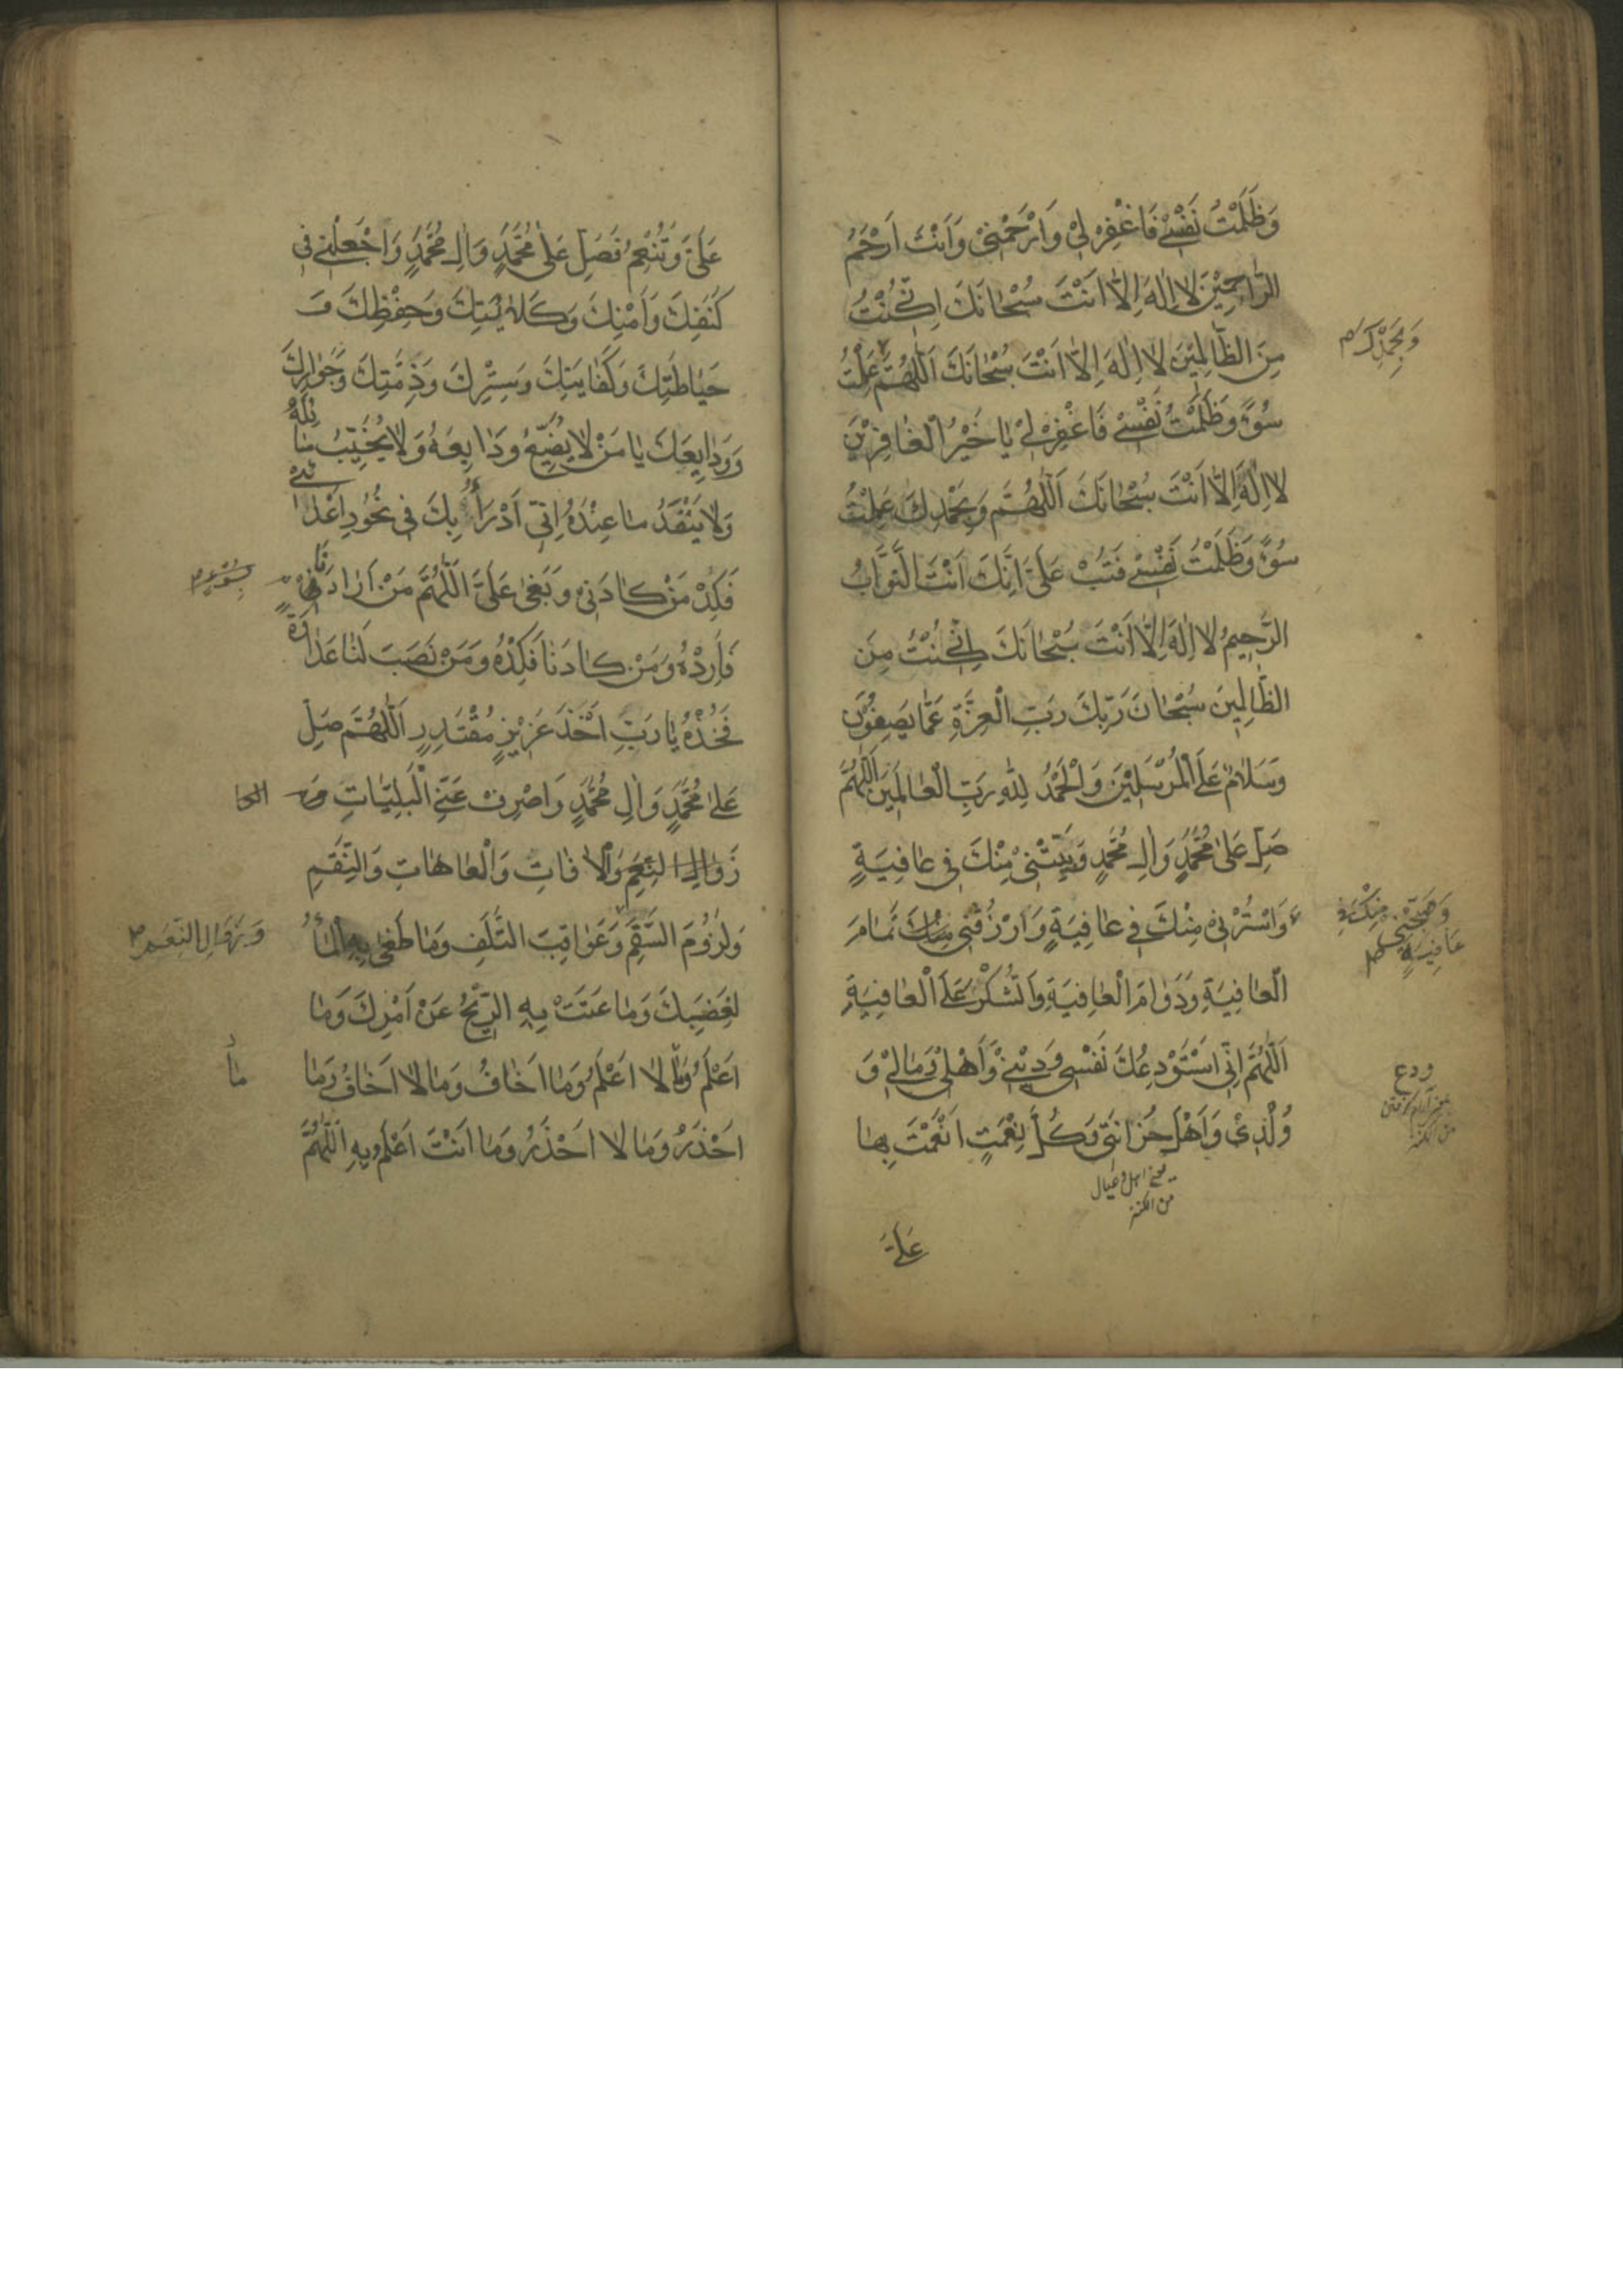 وَظَلَمْتُ نَفْسِيْ فَاغْفِرْ لِيْ وَارْحَمْنِيْ وَاَنْتَ اَرْحَمُ
الرَّاحِمِيْنَ لَا اِلٰهَ اِلَّا اَنْتَ سُبْحَانَكَ اِنِّيْ كُنْتُ
مِنَ الظَّالِمِيْنَ لَا اِلٰهَ اِلَّا اَنْتَ سُبْحَانَكَ اَللّٰهُمَّ عَمِلْتُ
وَبِحَمْدِكَ م
سُوْءً وَظَلَمْتُ نَفْسِيْ فَاغْفِرْ لِيْ يَا خَيْرَ الْغَافِرِيْنَ
لَا اِلٰهَ اِلَّا اَنْتَ سُبْحَانَكَ اَللّٰهُمَّ وَبِحَمْدِكَ عَمِلْتُ
سُوْءً وَظَلَمْتُ نَفْسِيْ فَتُبْ عَلَيَّ اِنَّكَ اَنْتَ التَّوَّابُ
الرَّحِيمُ لَا اِلٰهَ اِلَّا اَنْتَ سُبْحَانَكَ اِنِّيْ كُنْتُ مِنَ
الظَّالِمِينَ سُبْحَانَ رَبِّكَ رَبِّ الْعِزَّةِ عَمَّا يَصِفُوْنَ
وَسَلَامٌ عَلَى الْمُرْسَلِيْنَ وَالْحَمْدُ لِلّٰهِ رَبِّ الْعَالَمِيْنَ اَللّٰهُمَّ
صَلِّ عَلٰى مُحَمَّدٍ وَاٰلِ مُحَمَّدٍ وَبَيِّتْنِيْ مِنْكَ فِي عَافِيَةٍ
وَصَبِّحْنِيْ مِنْكَ فِيْ
عَافِيَةٍ
وَاسْتُرْنِيْ مِنْكَ فِي عَافِيَةٍ وَارْزُقْنِي تَمَامَ
الْعَافِيَةِ وَدَوَامَ الْعَافِيَةِ وَالشُّكْرَ عَلَى الْعَافِيَةِ
اَللّٰهُمَّ اِنِّي اَسْتَوْدِعُكَ نَفْسِي وَدِيْنِيْ وَاَهْلِيْ وَمَالِيْ وَ
ودع
وُلْدِيْ وَاَهْلَ حُزَانَتِيْ وَكُلَّ نِعْمَتٍ اَنْعَمْتَ بِهَا
يعني اهل وعيال
من الكنز
عَلَيَّ
عَلَيَّ وَتُنْعِمُ فَصَلِّ عَلٰى مُحَمَّدٍ وَاٰلِ مُحَمَّدٍ وَاجْعَلْنِيْ فِي
كَنَفِكَ وَاَمْنِكَ وَكَلَائَتِكَ وَحِفْظِكَ وَ
حَيَاطَتِكَ وَكَفَايَتِكَ وَسِتْرِكَ وَذِمَّتِكَ وَجِوَارِكَ
وَوَدَايِعِكَ يَا مَنْ لَا يُضَيِّعُ وَدَايِعَهُ وَلَا يُخَيِّبُ سَائِلَهُ
وَلَا يَنْفَدُ مَا عِنْدَهُ اِنِّي اَدْرَأُ بِكَ فِي نُحُورِ اَعْدَائِيْ
فَكِدْ مَنْ كَادَنِيْ وَبَغٰى عَلَيَّ اَللّٰهُمَّ مَنْ اَرَادَنَا
بِسُوْءٍ م
فَاَرِدْهُ وَمَنْ كَادَنَا فَكِدْهُ وَمَنْ نَصَبَ لَنَا عَدَاوَةً
فَخُذْهُ يَا رَبِّ اَخْذَ عَزِيْزٍ مُقْتَدِرٍ اَللّٰهُمَّ صَلِّ
عَلٰى مُحَمَّدٍ وَاٰلِ مُحَمَّدٍ وَاصْرِفْ عَنِّي الْبَلِيَّاتِ
زَوَالِ النِّعَمِ وَالْاٰفَاتِ وَالْعَاهَاتِ وَالنِّقَمِ
وَلُزُوْمَ السَّقَمِ وَعَوَاقِبَ التَّلَفِ وَمَا طَغٰى بِهِ الْمَاءُ
وَزَوَالِ النِّعَمِ م
لِغَضَبِكَ وَمَا عَتَتْ بِهِ الرِّيْحُ عَنْ اَمْرِكَ وَمَا
اَعْلَمُ وَمَا لَا اَعْلَمُ وَمَا اَخَافُ وَمَا لَا اَخَافُ وَمَا
مَا
اَحْذَرُ وَمَا لَا اَحْذَرُ وَمَا اَنْتَ اَعْلَمُ بِهِ اَللّٰهُمَّ